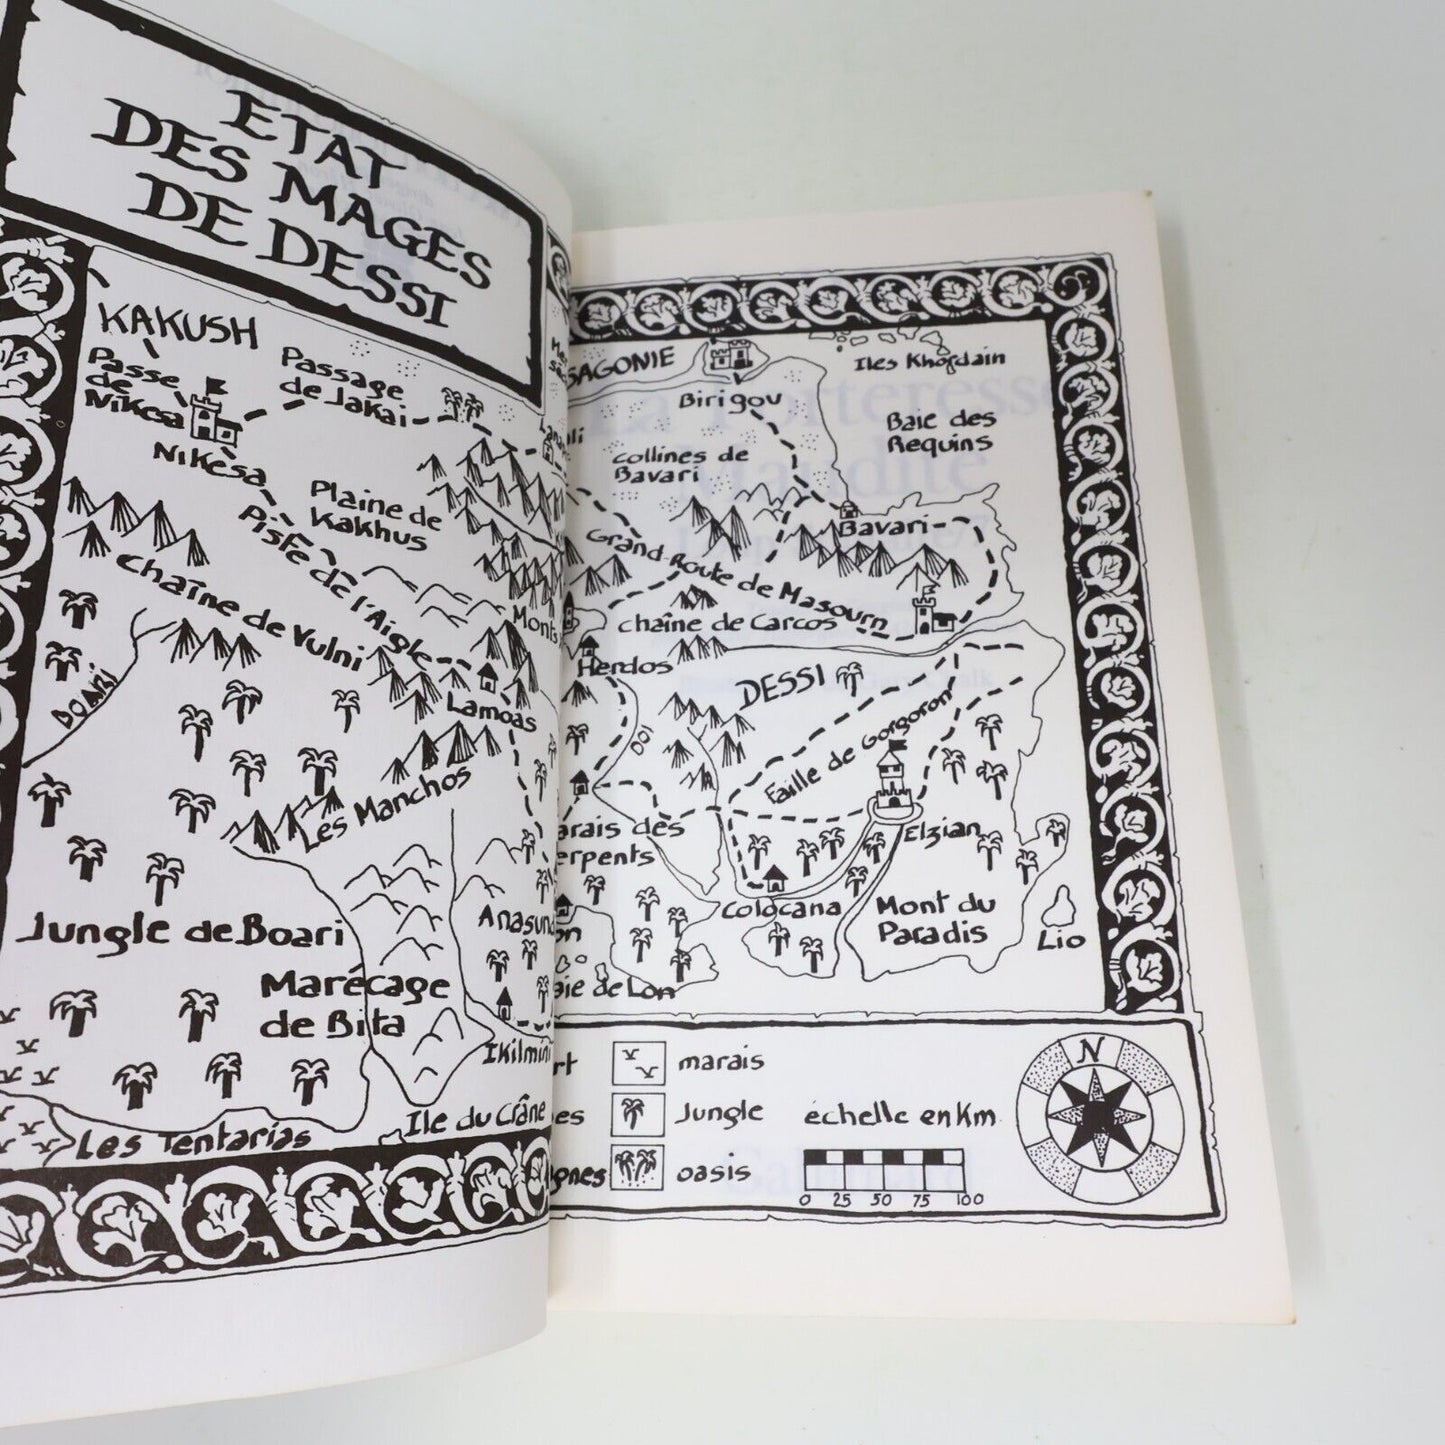 ETAT
DES MAGES
DE DESSI
KAKUSH
Passe
de
Nikesa
Nikesa
Passage
de Jakai
Plaine de
Kakhus
Piste de l'Aigle
Chaîne de Vulni
BOARI
Lamoas
Les Manchos
Monts
Jungle de Boari
Marécage
de Bita
Anasun
Ikilmini
Ile du Crâne
Les Tentarias
SAGONIE
Birigou
Iles Khordain
Baie des
Requins
collines de
Bavari
Bavari
Grand-Route de Masourn
chaîne de Carcos
Herdos
DESSI
DOI
Faille de Gorgoron
Elzian
arais des
erpents
Colocana
Mont du
Paradis
Lio
on
aie de Lon
rt
marais
es
Jungle
gnes
oasis
échelle en Km
0 25 50 75 100
N
La Forteresse
Maudite